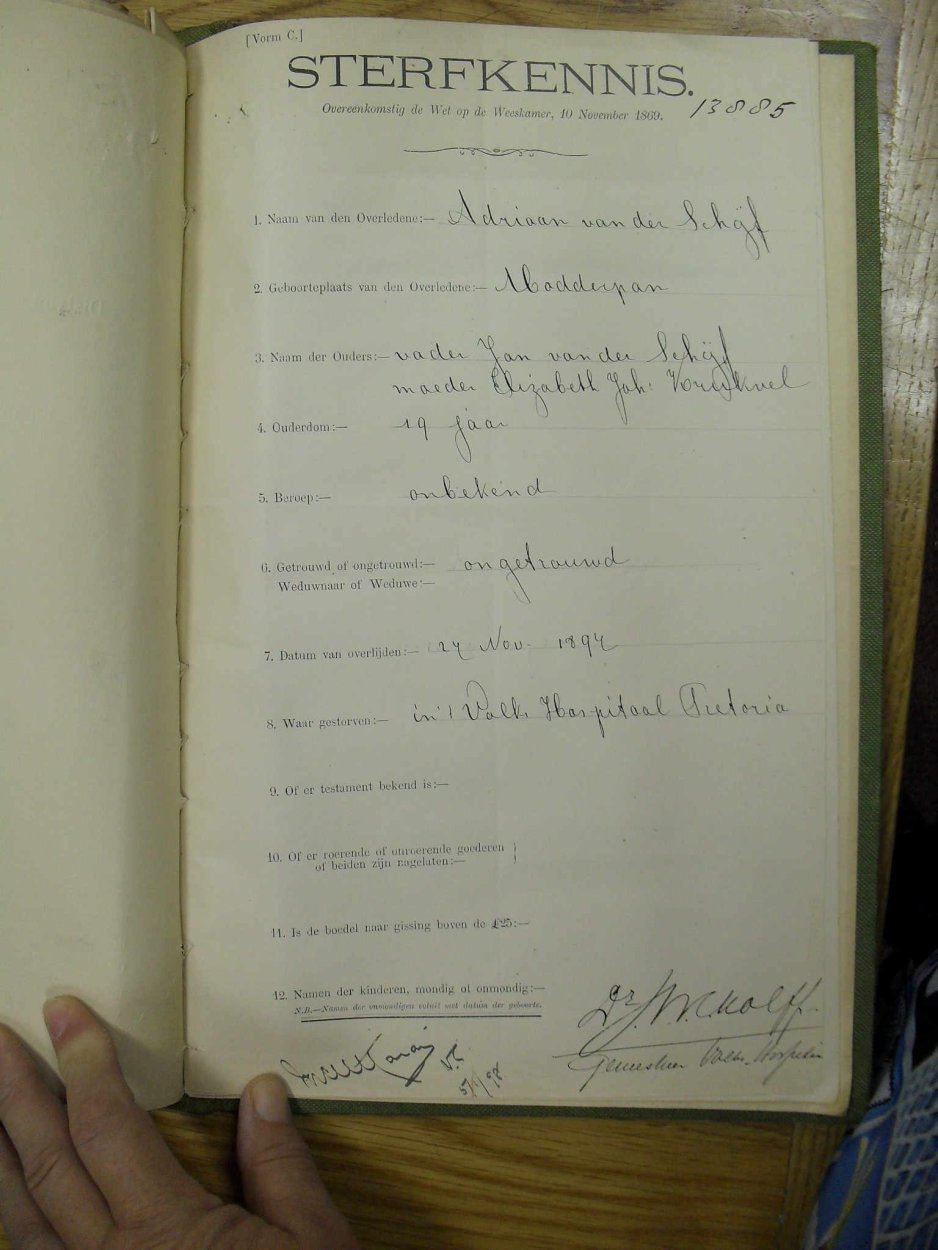 [Vorm C.]
STERFKENNIS.
Overeenkomstig de Wet op de Weeskamer, 10 November 1869. 13885
1. Naam van den Overledene:— Adriaan van der Schijf
2. Geboorteplaats van den Overledene:— Modderpan
3. Naam der Ouders:— vader Jan van der Schijf
moeder Elizabeth Joh:
4. Ouderdom:— 19 jaar
5. Beroep:— onbekend
6. Getrouwd of ongetrouwd:— ongetrouwd
Weduwnaar of Weduwe:—
7. Datum van overlijden:— Nov. 1897
8. Waar gestorven:— in 't Volks Hospitaal Pretoria
9. Of er testament bekend is:—
10. Of er roerende of onroerende goederen }
of beiden zijn nagelaten:—
11. Is de boedel naar gissing boven de £25:—
12. Namen der kinderen, mondig of onmondig:—
N.B.—Namen der onmondigen voluit met datum der geboorte.
Dr.
Geneesheer Volks Hospitaal